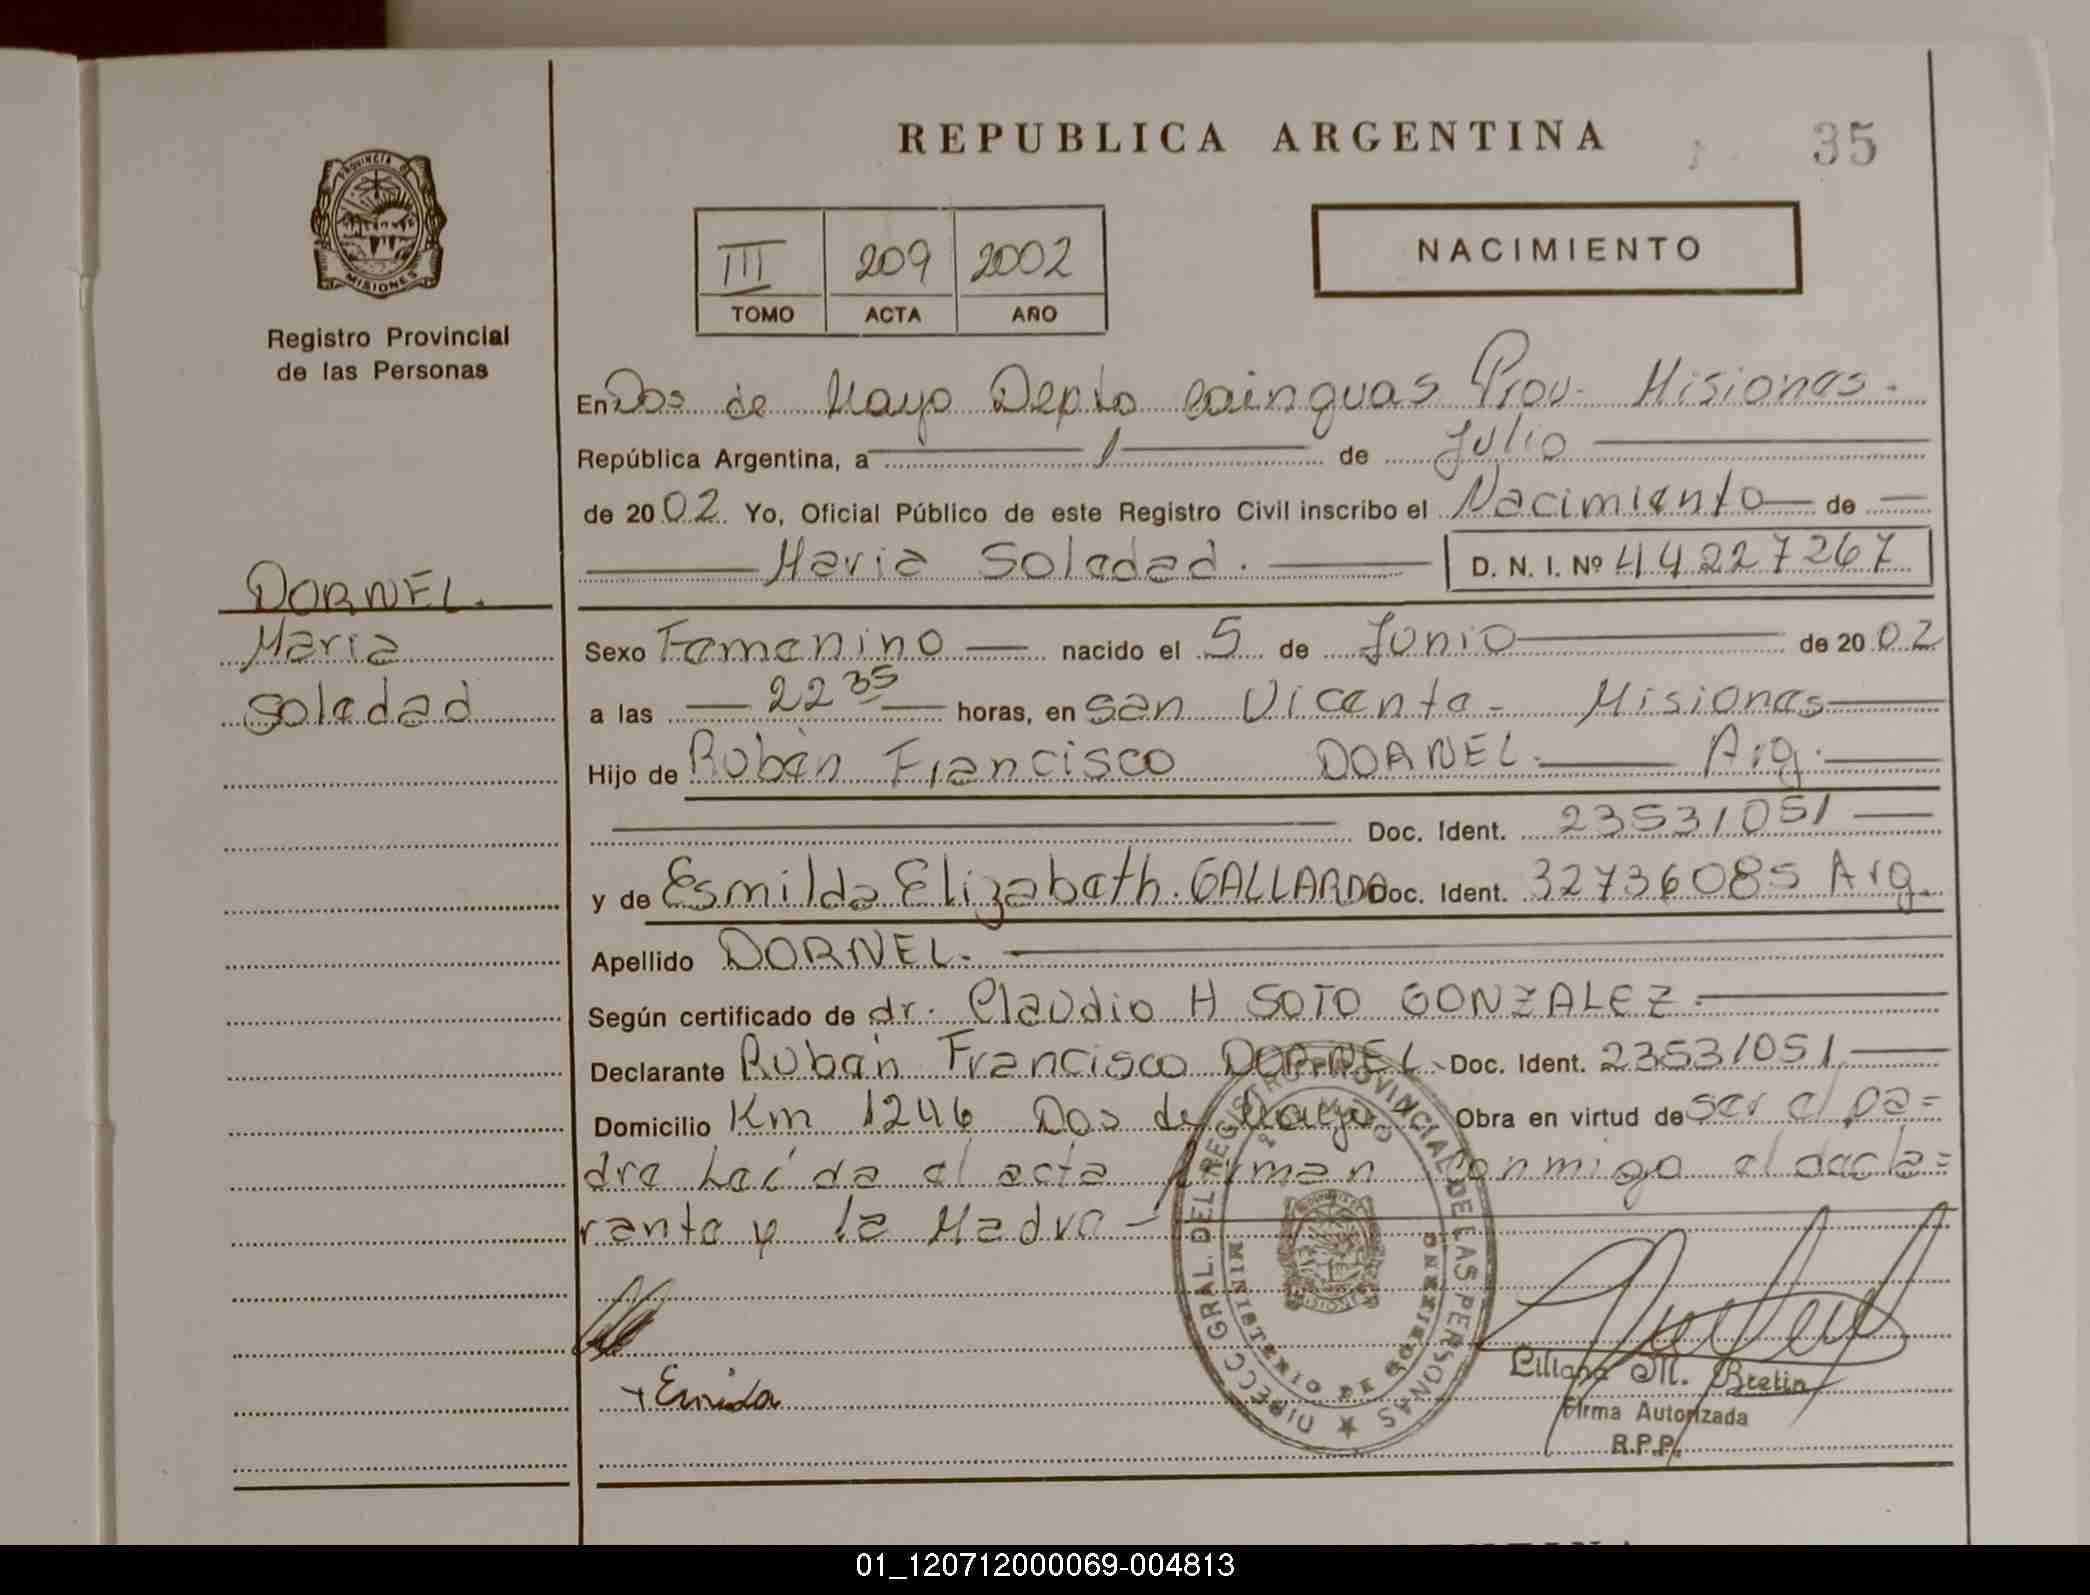 REPUBLICA ARGENTINA
35
PROVINCIA DE
MISIONES
Registro Provincial
de las Personas
III 209 2002
TOMO ACTA AÑO
NACIMIENTO
En Dos de Mayo Depto Cainguas Prov. Misiones.
República Argentina, a 1 de Julio
de 2002 Yo, Oficial Público de este Registro Civil inscribo el Nacimiento de
Maria Soledad. D. N. I. Nº 44227267
DORNEL.
Maria
Soledad
Sexo Femenino nacido el 5 de Junio de 2002
a las 22 35 horas, en San Vicente - Misiones
Hijo de Rubén Francisco DORNEL. Arg.
Doc. Ident. 23531051
y de Esmilda Elizabeth. GALLARDO Doc. Ident. 32736085 Arg.
Apellido DORNEL.
Según certificado de dr. Claudio H SOTO GONZALEZ.
Declarante Rubén Francisco DORNEL Doc. Ident. 23531051
Domicilio Km 1246 Dos de Mayo Obra en virtud de ser el pa=
dre Leída el acta firman conmigo el decla=
rante y la Madre -
DIRECC GRAL. DEL REGISTRO PROVINCIAL DE LAS PERSONAS
2 DE MAYO
MINISTERIO DE GOBIERNO
Liliana M. Bretin
Firma Autorizada
R.P.P.
01_120712000069-004813